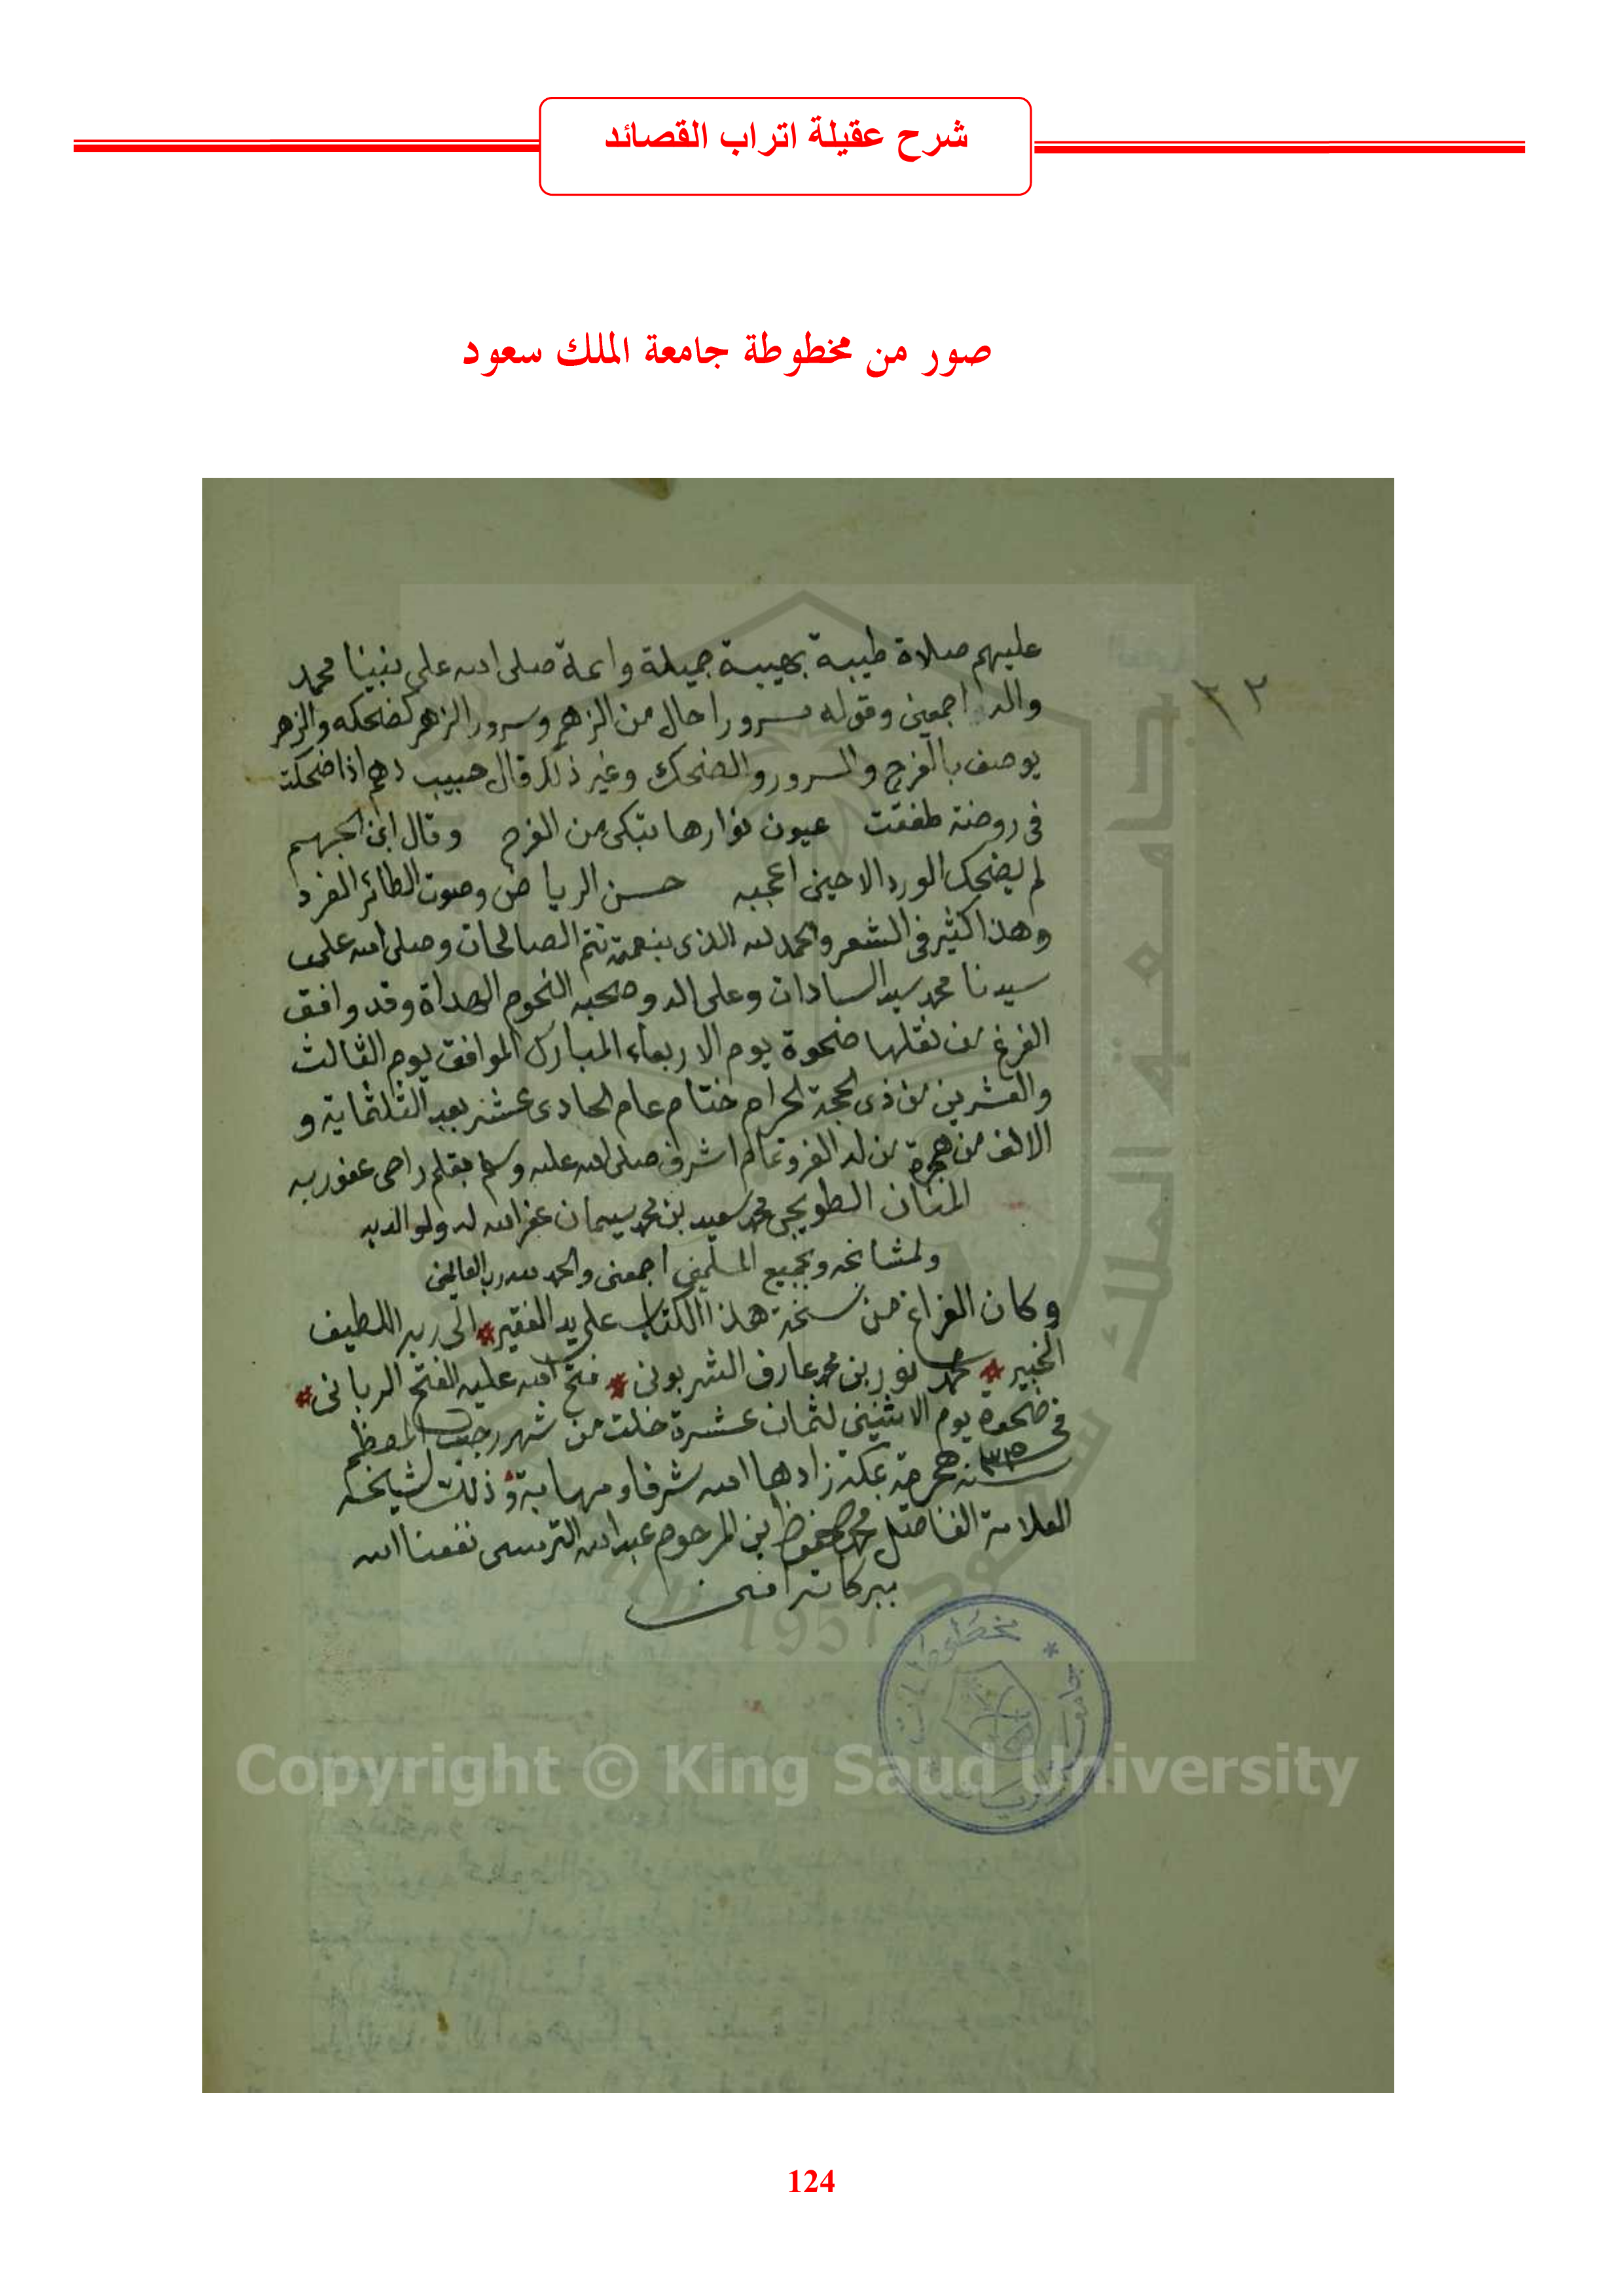 شرح عقيلة اتراب القصائد
صور من مخطوطة جامعة الملك سعود
٣٢
عليهم صلاة طيبة بهيبة جميلة وا صلى الله على نبينا محمد
واله اجمعين وقوله سرورا حال من الزهر وسرور الزهر كضحكه والزهر
يوصف بالفرح والسرور والضحك وغير ذلك قال حبيب اذا ضحكت
فى روضة طفقت عيون نوارها تبكى من الفرح وقال ابن الجهم
لم يضحك الورد الا حين اعجبه حسن الرياض وصوت الطائر الغرد
وهذا كثير فى الشعر والحمد لله الذى بنعمته تتم الصالحات وصلى الله على
سيدنا محمد سيد السادات وعلى اله وصحبه النجوم الهداة وقد وافق
الفرغ من نقلها ضحوة يوم الاربعاء المبارك الموافق يوم الثالث
والعشرين من ذى الحجة الحرام ختام عام الحادى عشر بعد الثلثماية و
الالف من هجرة من له العز وتمام اشرف صلى الله عليه وسلم بقلم راجى عفو ربه
المنان محمد سعيد بن محمد سيمان غفر الله له ولوالديه
ولمشائخه ولجميع المسلمين اجمعين والحمد لله رب العالمين
وكان الفراغ من نسخة هذا الكتاب على يد الفقير * الى ربه اللطيف
الخبير * محمد نور بن محمد عارف الشربونى * فتح الله عليه الفتح الربانى *
فى ضحوة يوم الاثنين لثمان عشرة خلت من شهر رجب المعظم
سنة هجرية بمكة زادها الله شرفا ومهابة وذلك لشيخه
العلامة الفاضل محمد محفوظ ابن المرحوم عبد الله الترمسى نفعنا الله
ببركاته امين
جامعة الملك سعود
1957
مخطوطات
جامعة الرياض
Copyright © King Saud University
124